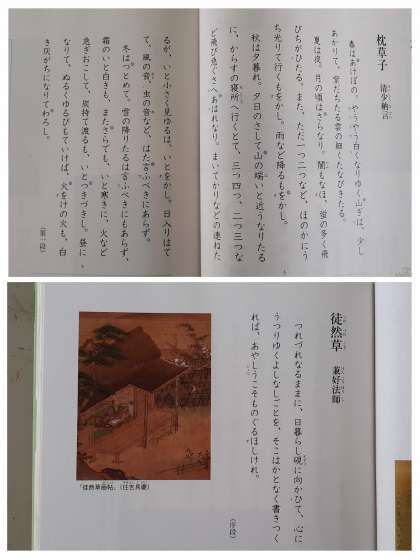 枕草子
清少納言
春はあけぼの。やうやう白くなりゆく山ぎは、少し
あかりて、紫だちたる雲の細くたなびきたる。
夏は夜。月の頃はさらなり、闇もなほ、蛍の多く飛
びちがひたる。また、ただ一つ二つなど、ほのかにう
ち光りて行くもをかし。雨など降るもをかし。
秋は夕暮れ。夕日のさして山の端いと近うなりたる
に、からすの寝所へ行くとて、三つ四つ、二つ三つな
ど飛び急ぐさへあはれなり。まいてかりなどの連ねた
るが、いと小さく見ゆるは、いとをかし。日入りはて
て、風の音、虫の音など、はた言ふべきにあらず。
冬はつとめて。雪の降りたるは言ふべきにもあらず、
霜のいと白きも、またさらでも、いと寒きに、火など
急ぎおこして、炭持て渡るも、いとつきづきし。昼に
なりて、ぬるくゆるびもていけば、火をけの火も、白
き灰がちになりてわろし。
（第一段）
徒然草
兼好法師
つれづれなるままに、日暮らし硯に向かひて、心に
うつりゆくよしなしごとを、そこはかとなく書きつく
れば、あやしうこそものぐるほしけれ。
（序段）
「徒然草画帖」（住吉具慶）